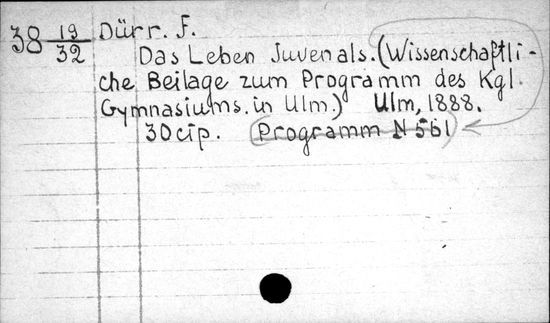 38 19/32 Dürr. F.
Das Leben Juvenals. (Wissenschaftli-
che Beilage zum Programm des Kgl.
Gymnasiums. in Ulm.) Ulm, 1888.
30 cip. (Programm N 561)